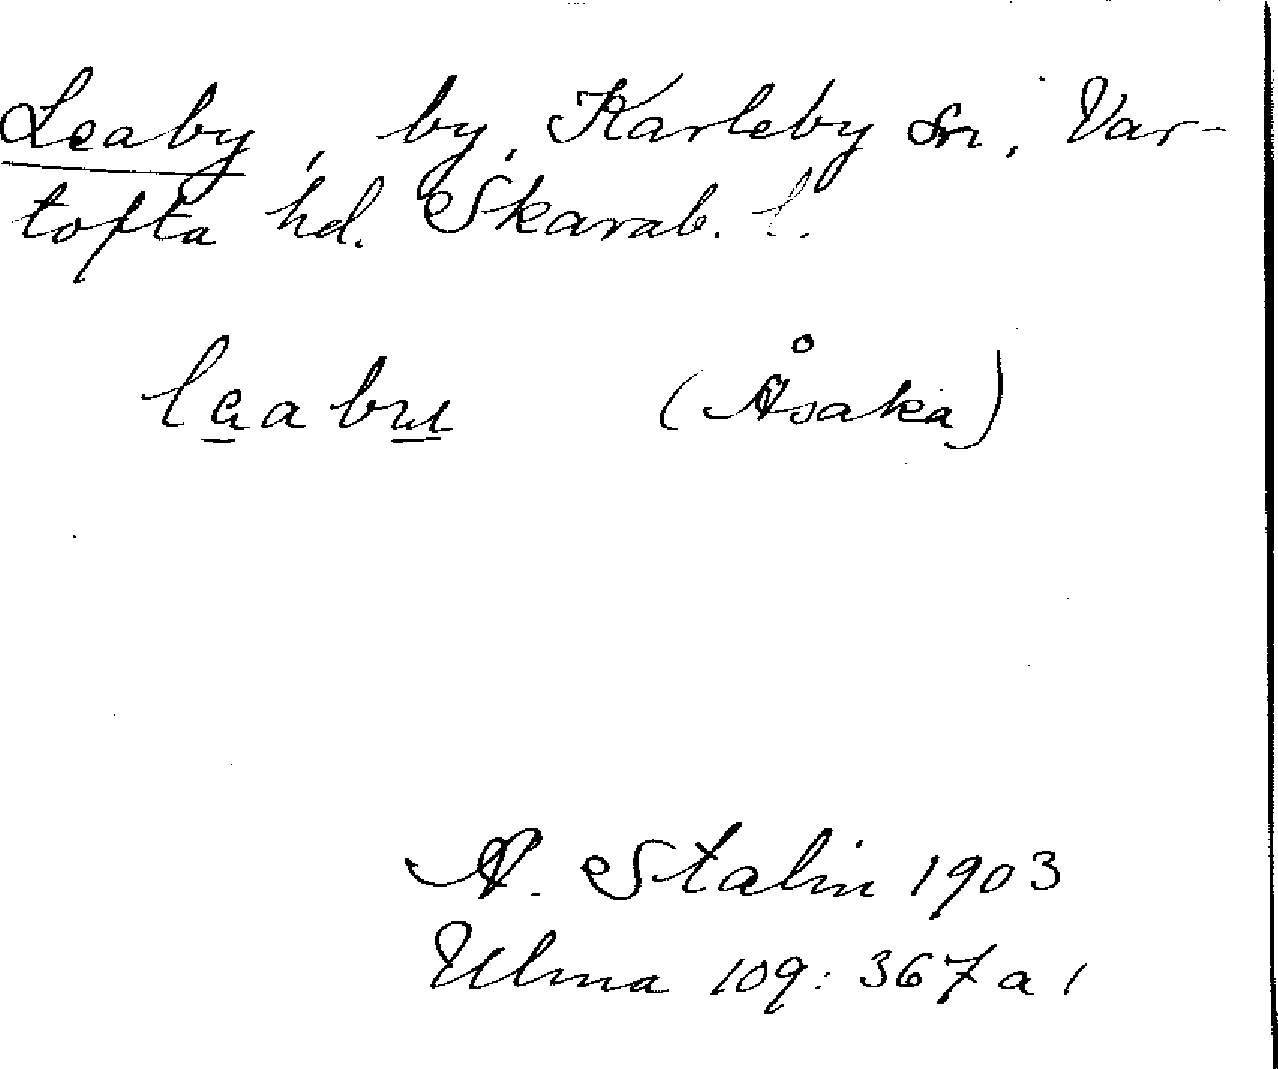 Leaby, by, Karleby sn, Var-
tofta hd. Skarab. l.
leabu (Åsaka)
A. Stalin 1903
Ulma 109: 367 a 1